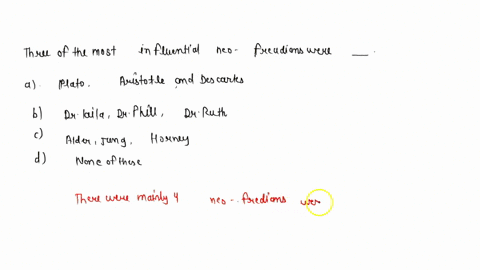 Three of the most influential neo- freudians were __.
a). Plato. Aristotle and Descartes
b) Dr. laila, Dr. Phill, Dr. Ruth
c) Alder, Jung, Horney
d) None of these
There were mainly 4 neo- fredians were